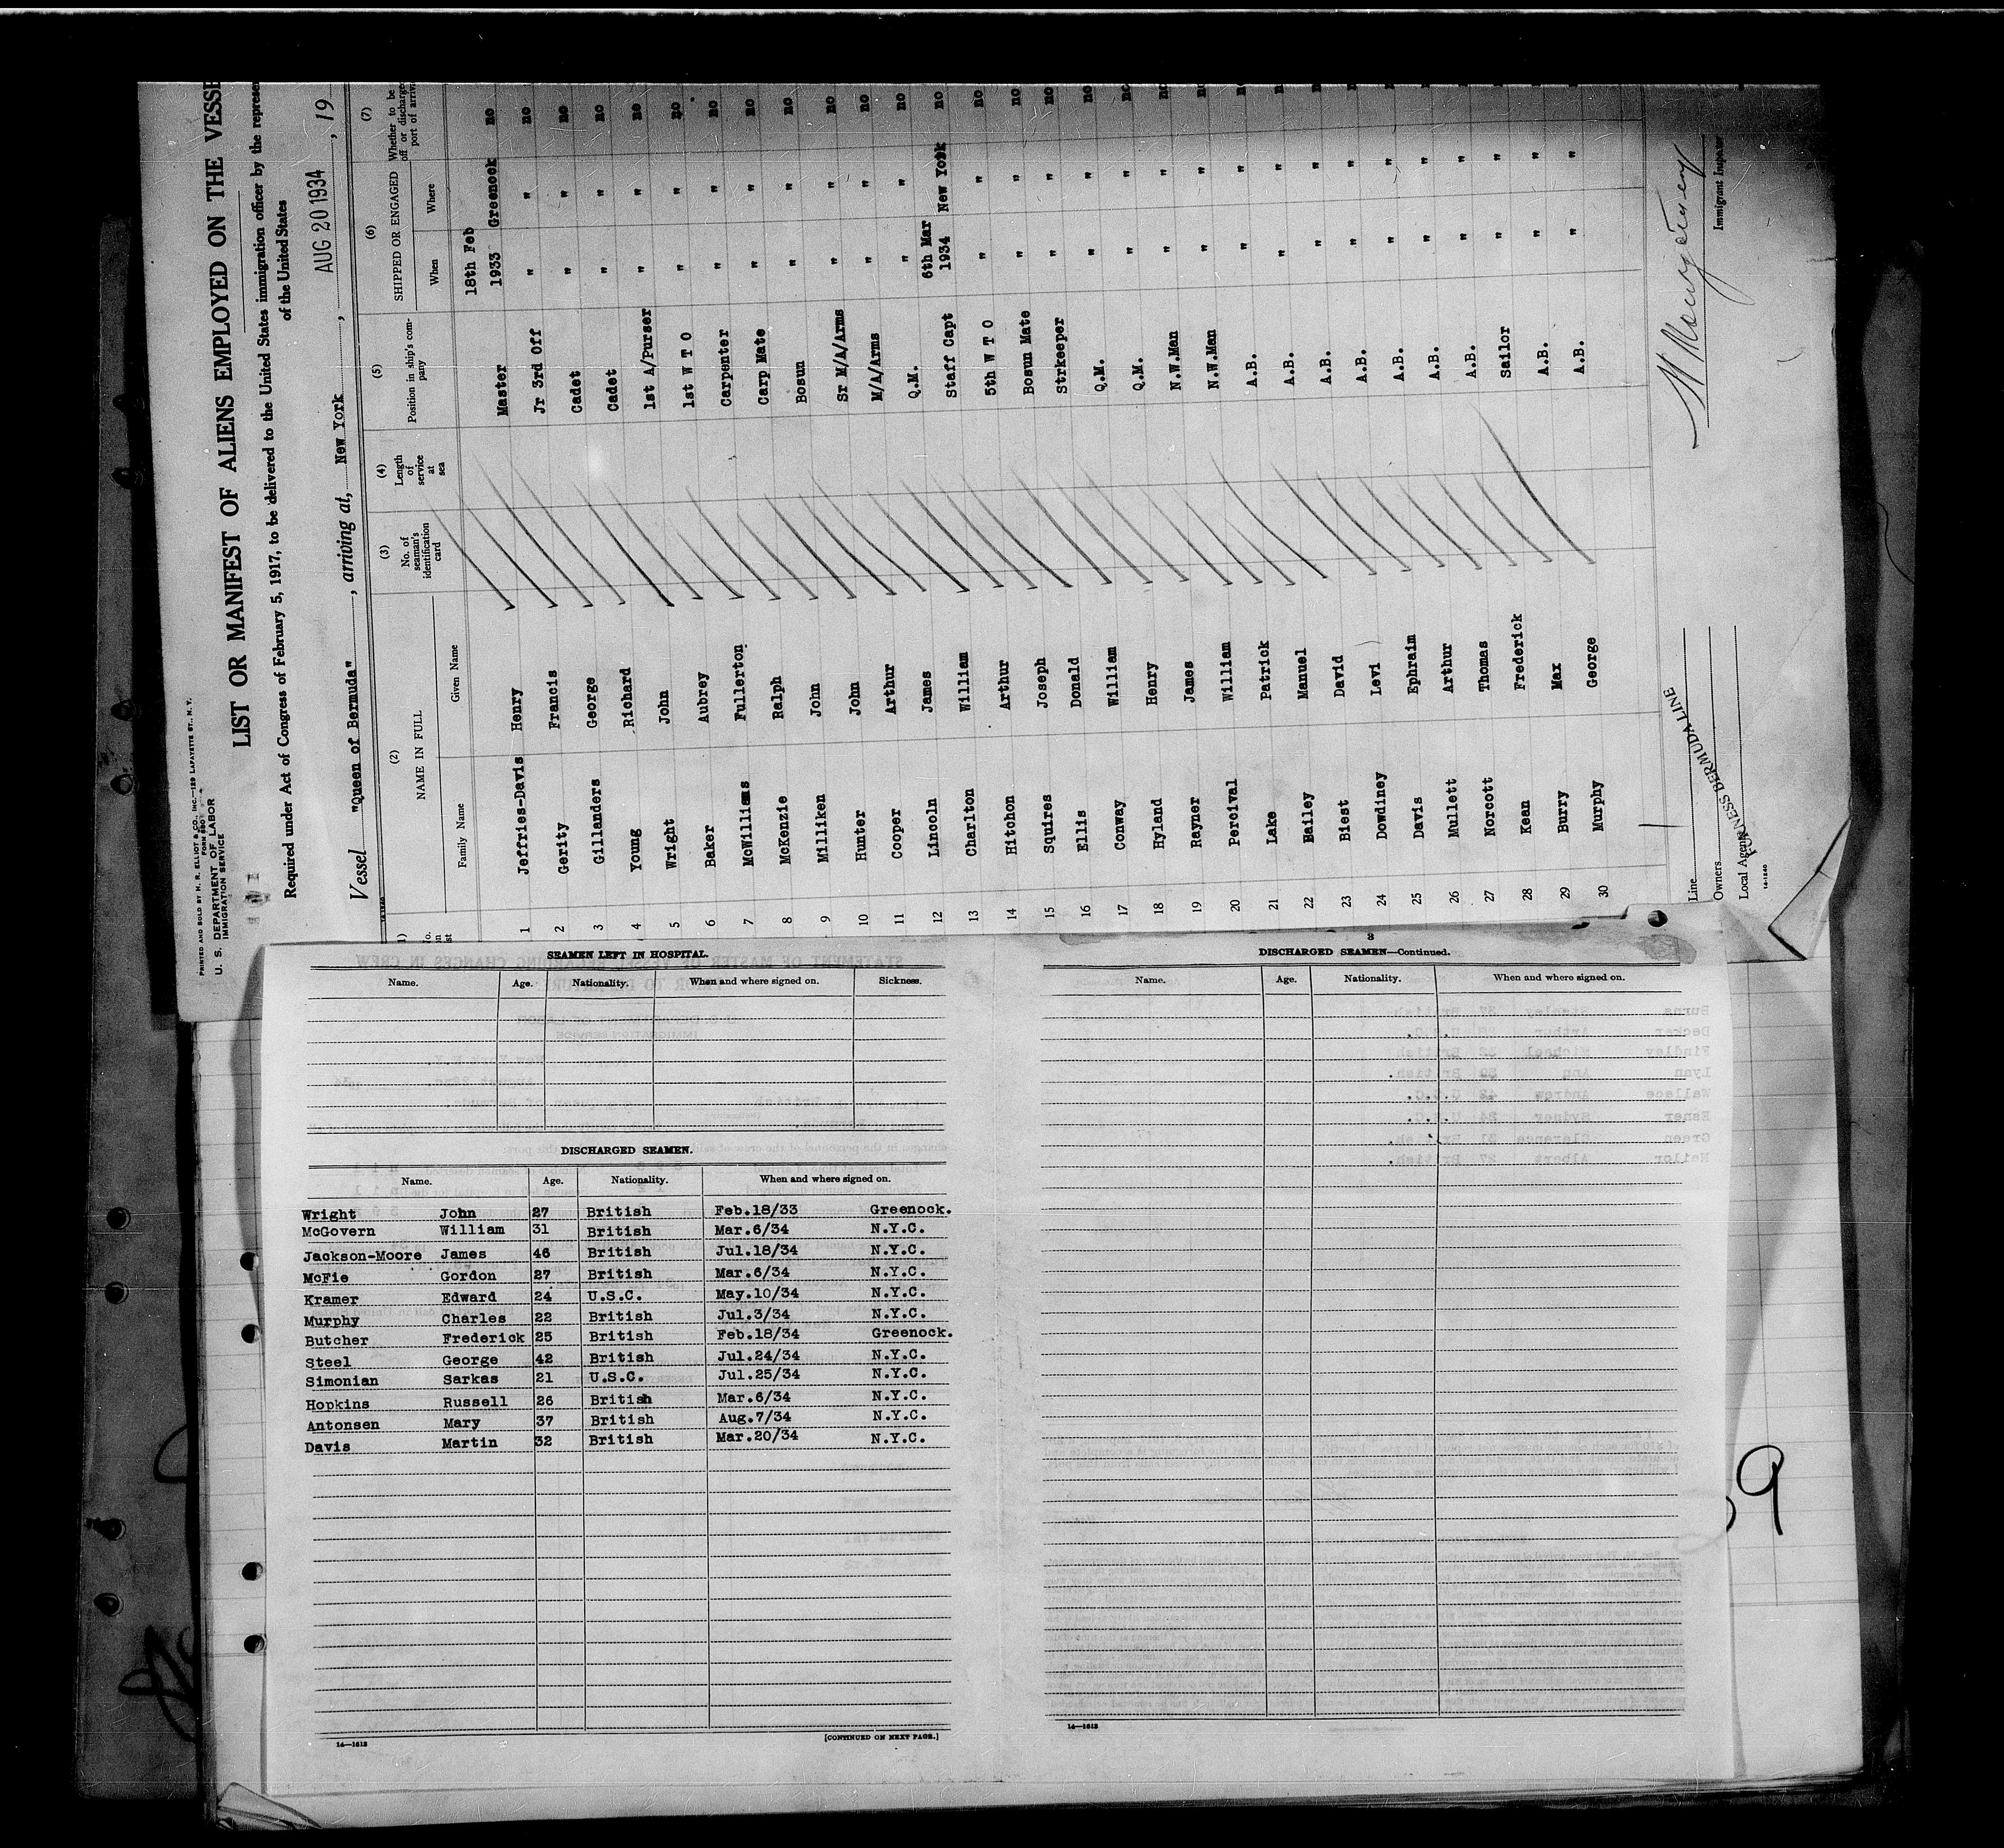 PRINTED AND SOLD BY H. R. ELLIOT & CO., INC.—129 LAFAYETTE ST., N. Y.
U. S. DEPARTMENT OF LABOR
IMMIGRATION SERVICE
LIST OR MANIFEST OF ALIENS EMPLOYED ON THE VESSE
Required under Act of Congress of February 5, 1917, to be delivered to the United States immigration officer by the represen
of the United States
Vessel "Queen of Bermuda", arriving at, New York, AUG 20 1934, 19
(2) (3) (4) (5) (6) (7)
NAME IN FULL No. of seaman's identification card Length of service at sea Position in ship's company SHIPPED OR ENGAGED Whether to be off or discharge port of arriva
Family Name Given Name When Where
1 Jeffries-Davis Henry Master 18th Feb 1933 Greenock no
2 Gerity Francis Jr 3rd Off " " no
3 Gillanders George Cadet " " no
4 Young Richard Cadet " " no
5 Wright John 1st A/Purser " " no
6 Baker Aubrey 1st W T O " " no
7 McWilliams Fullerton Carpenter " " no
8 McKenzie Ralph Carp Mate " " no
9 Milliken John Bosun " " no
10 Hunter John Sr M/A/Arms " " no
11 Cooper Arthur M/A/Arms " " no
12 Lincoln James Q.M. " " no
13 Charlton William Staff Capt 6th Mar 1934 New York no
14 Hitchon Arthur 5th W T O " " no
15 Squires Joseph Bosun Mate " " no
16 Ellis Donald Strkeeper " " no
17 Conway William Q.M. " " no
18 Hyland Henry Q.M. " " no
19 Rayner James N.W.Man " " no
20 Percival William N.W.Man " " no
21 Lake Patrick A.B. " " no
22 Bailey Manuel A.B. " "
23 Biest David A.B. " "
24 Dowdiney Levi A.B. " "
25 Davis Ephraim A.B. " "
26 Mullett Arthur A.B. " "
27 Norcott Thomas A.B. " "
28 Kean Frederick Sailor " "
29 Burry Max A.B. " "
30 Murphy George A.B. " "
Line
Owners
Local Agents
FURNESS BERMUDA LINE
Immigrant Inspector
SEAMEN LEFT IN HOSPITAL.
Name. Age. Nationality. When and where signed on. Sickness.
DISCHARGED SEAMEN.
Name. Age. Nationality. When and where signed on.
Wright John 27 British Feb.18/33 Greenock.
McGovern William 31 British Mar.6/34 N.Y.C.
Jackson-Moore James 46 British Jul.18/34 N.Y.C.
McFie Gordon 27 British Mar.6/34 N.Y.C.
Kramer Edward 24 U.S.C. May.10/34 N.Y.C.
Murphy Charles 22 British Jul.3/34 N.Y.C.
Butcher Frederick 25 British Feb.18/34 Greenock.
Steel George 42 British Jul.24/34 N.Y.C.
Simonian Sarkas 21 U.S.C. Jul.25/34 N.Y.C.
Hopkins Russell 26 British Mar.6/34 N.Y.C.
Antonsen Mary 37 British Aug.7/34 N.Y.C.
Davis Martin 32 British Mar.20/34 N.Y.C.
14—1613
[CONTINUED ON NEXT PAGE.]
3
DISCHARGED SEAMEN—Continued.
Name. Age. Nationality. When and where signed on.
14—1613
9